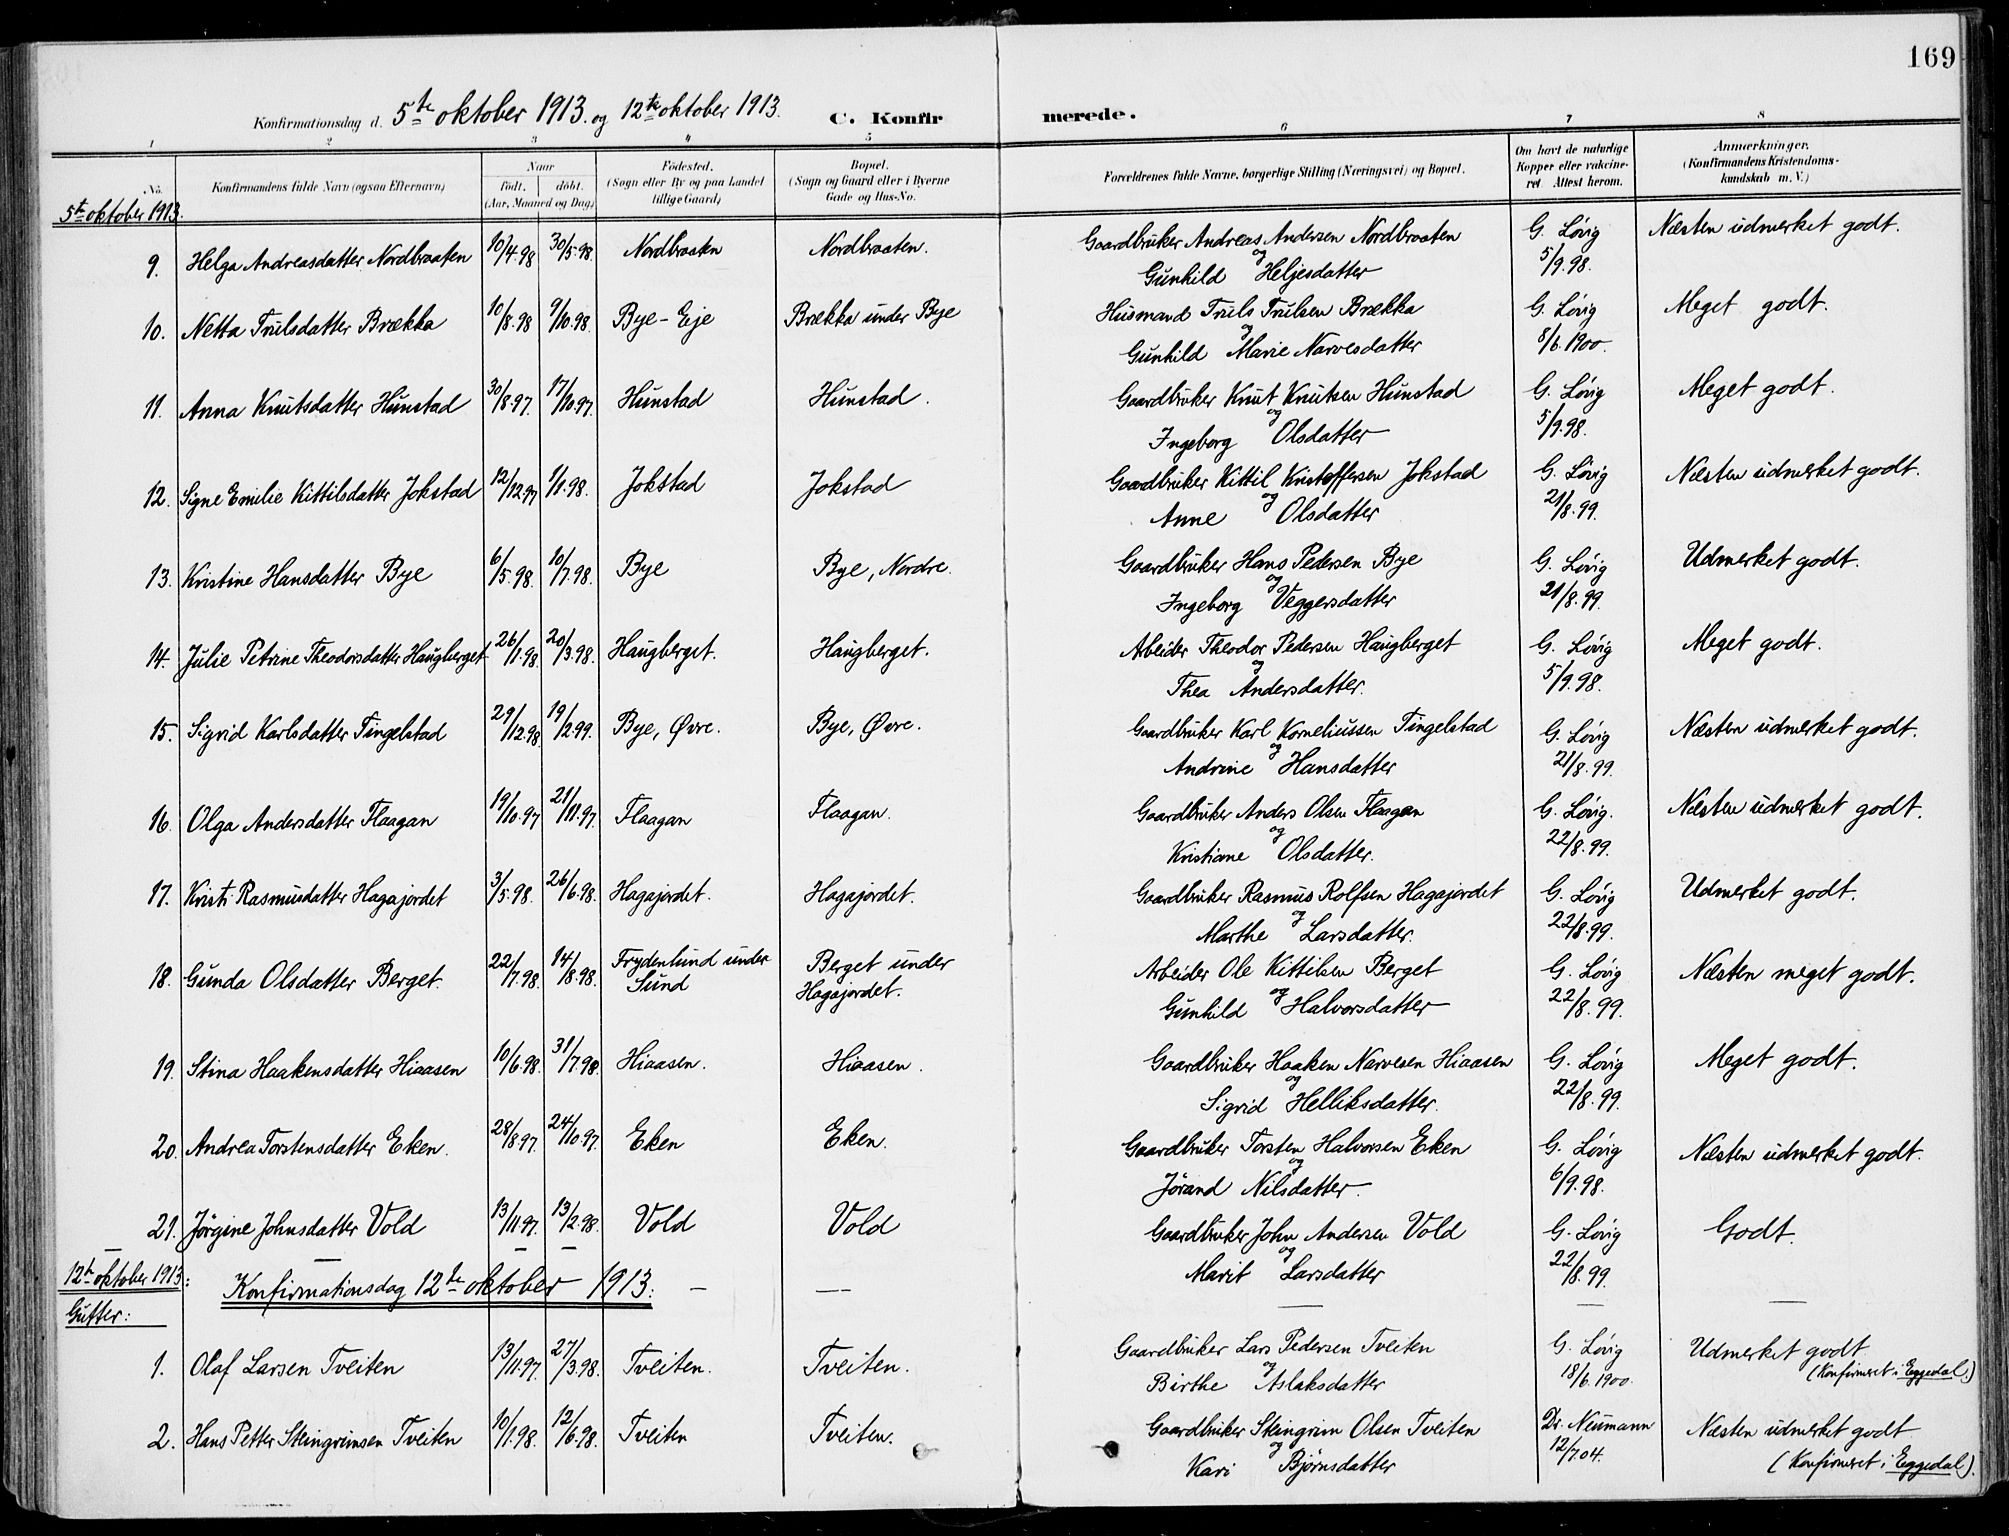 169
Konfirmationsdag d. 5te oktober 1913. og 12te oktober 1913. C. Konfirmerede.
1 2 3 4 5 6 7 8
No. Konfirmandens fulde Navn (ogsaa Efternavn) Naar født. døbt. (Aar, Maaned og Dag) Fødested. (Sogn eller By og paa Landet tillige Gaard) Bopæl. (Sogn og Gaard eller i Byerne Gade og Hus-No. Forældrenes fulde Navne, borgerlige Stilling (Næringsvei) og Bopæl. Om havt de naturlige Kopper eller vakcineret Attest herom. Anmærkninger. (Konfirmandens Kristendomskundskab m. V.)
5te oktober 1913.
9. Helga Andreasdatter Nordbraaten 10/4.98 30/5.98. Nordbraaten Nordbraaten. Gaardbruker Andreas Andersen Nordbraaten G. Løvig Næsten udmerket godt.
og Gunhild Heljesdatter 5/9.98.
10. Netta Trulsdatter Brækka 10/8.98 9/10.98. Bye-Eje Brækka under Bye Husmand Truls Trulsen Brækka G. Løvig Meget godt.
og Gunhild Marie Narvesdatter 8/6.1900.
11. Anna Knutsdatter Hunstad 30/8.97. 17/10.97. Hunstad Hunstad. Gaardbruker Knut Knutsen Hunstad G. Løvig Meget godt.
og Ingeborg Olsdatter 5/9.98.
12. Signe Emilie Kittilsdatter Jokstad 12/12.97 1/1.98. Jokstad Jokstad Gaardbruker Kittil Kristoffersen Jokstad G. Løvig Næsten udmerket godt.
og Anne Olsdatter 21/8.99.
13. Kristine Hansdatter Bye 6/5.98. 10/7.98. Bye Bye, Nordre. Gaardbruker Hans Pedersen Bye G. Løvig Udmerket godt.
og Ingeborg Veggersdatter 21/8.99.
14. Julie Petrine Theodorsdatter Haugberget 26/1.98. 20/3.98. Haugberget. Haugberget. Arbeider Theodor Pedersen Haugberget G. Løvig Meget godt.
og Thea Andersdatter. 5/9.98.
15. Sigrid Karlsdatter Tingelstad 29/12.98. 19/2.99. Bye, Øvre. Bye, Øvre. Gaardbruker Karl Korneliussen Tingelstad G. Løvig Næsten udmerket godt.
og Andrine Hansdatter 21/8.99.
16. Olga Andersdatter Flaagan 19/10.97 21/11.97. Flaagan Flaagan. Gaardbruker Anders Olsen Flaagan G. Løvig. Næsten udmerket godt.
og Kristiane Olsdatter. 22/8.99.
17. Kristi Rasmusdatter Hagajordet 3/5.98. 26/6.98. Hagajordet. Hagajordet. Gaardbruker Rasmus Rolfsen Hagajordet G. Løvig Udmerket godt.
og Marthe Larsdatter. 22/8.99.
18. Gunda Olsdatter Berget. 22/7.98. 14/8.98. Frydenlund under Sund Berget under Hagajordet. Arbeider Ole Kittilsen Berget G. Løvig Næsten meget godt.
og Gunhild Halvorsdatter 22/8.99.
19. Stina Haakensdatter Hiaasen 10/6.98. 31/7.98. Hiaasen. Hiaasen. Gaardbruker Haaken Narvesen Hiaasen G. Løvig Meget godt.
og Sigrid Helliksdatter. 22/8.99.
20. Andrea Torstensdatter Eken. 28/8.97. 24/10.97. Eken Eken. Gaardbruker Torsten Halvorsen Eken G. Løvig Næsten udmerket godt.
og Jørand Nilsdatter. 6/9.98.
21. Jørgine Johnsdatter Vold 13/11.97. 13/2.98. Vold Vold Gaardbruker John Andersen Vold G. Løvig Godt.
og Marit Larsdatter 22/8.99.
12te oktober 1913: Konfirmationsdag 12te oktober 1913.
Gutter:
1. Olaf Larsen Tveiten 13/11.97. 27/3.98. Tveiten. Tveiten. Gaardbruker Lars Pedersen Tveiten G. Løvig Udmerket godt
og Birthe Aslaksdatter 18/6.1900. (Konfirmeret i Eggedal.)
2. Hans Petter Steingrimsen Tveiten 10/1.98. 12/6.98. Tveiten Tveiten. Gaardbruker Steingrim Olsen Tveiten Dr. Neumann Næsten udmerket godt
og Kari Bjørnsdatter 12/7.04. (Konfirmeret i Eggedal).